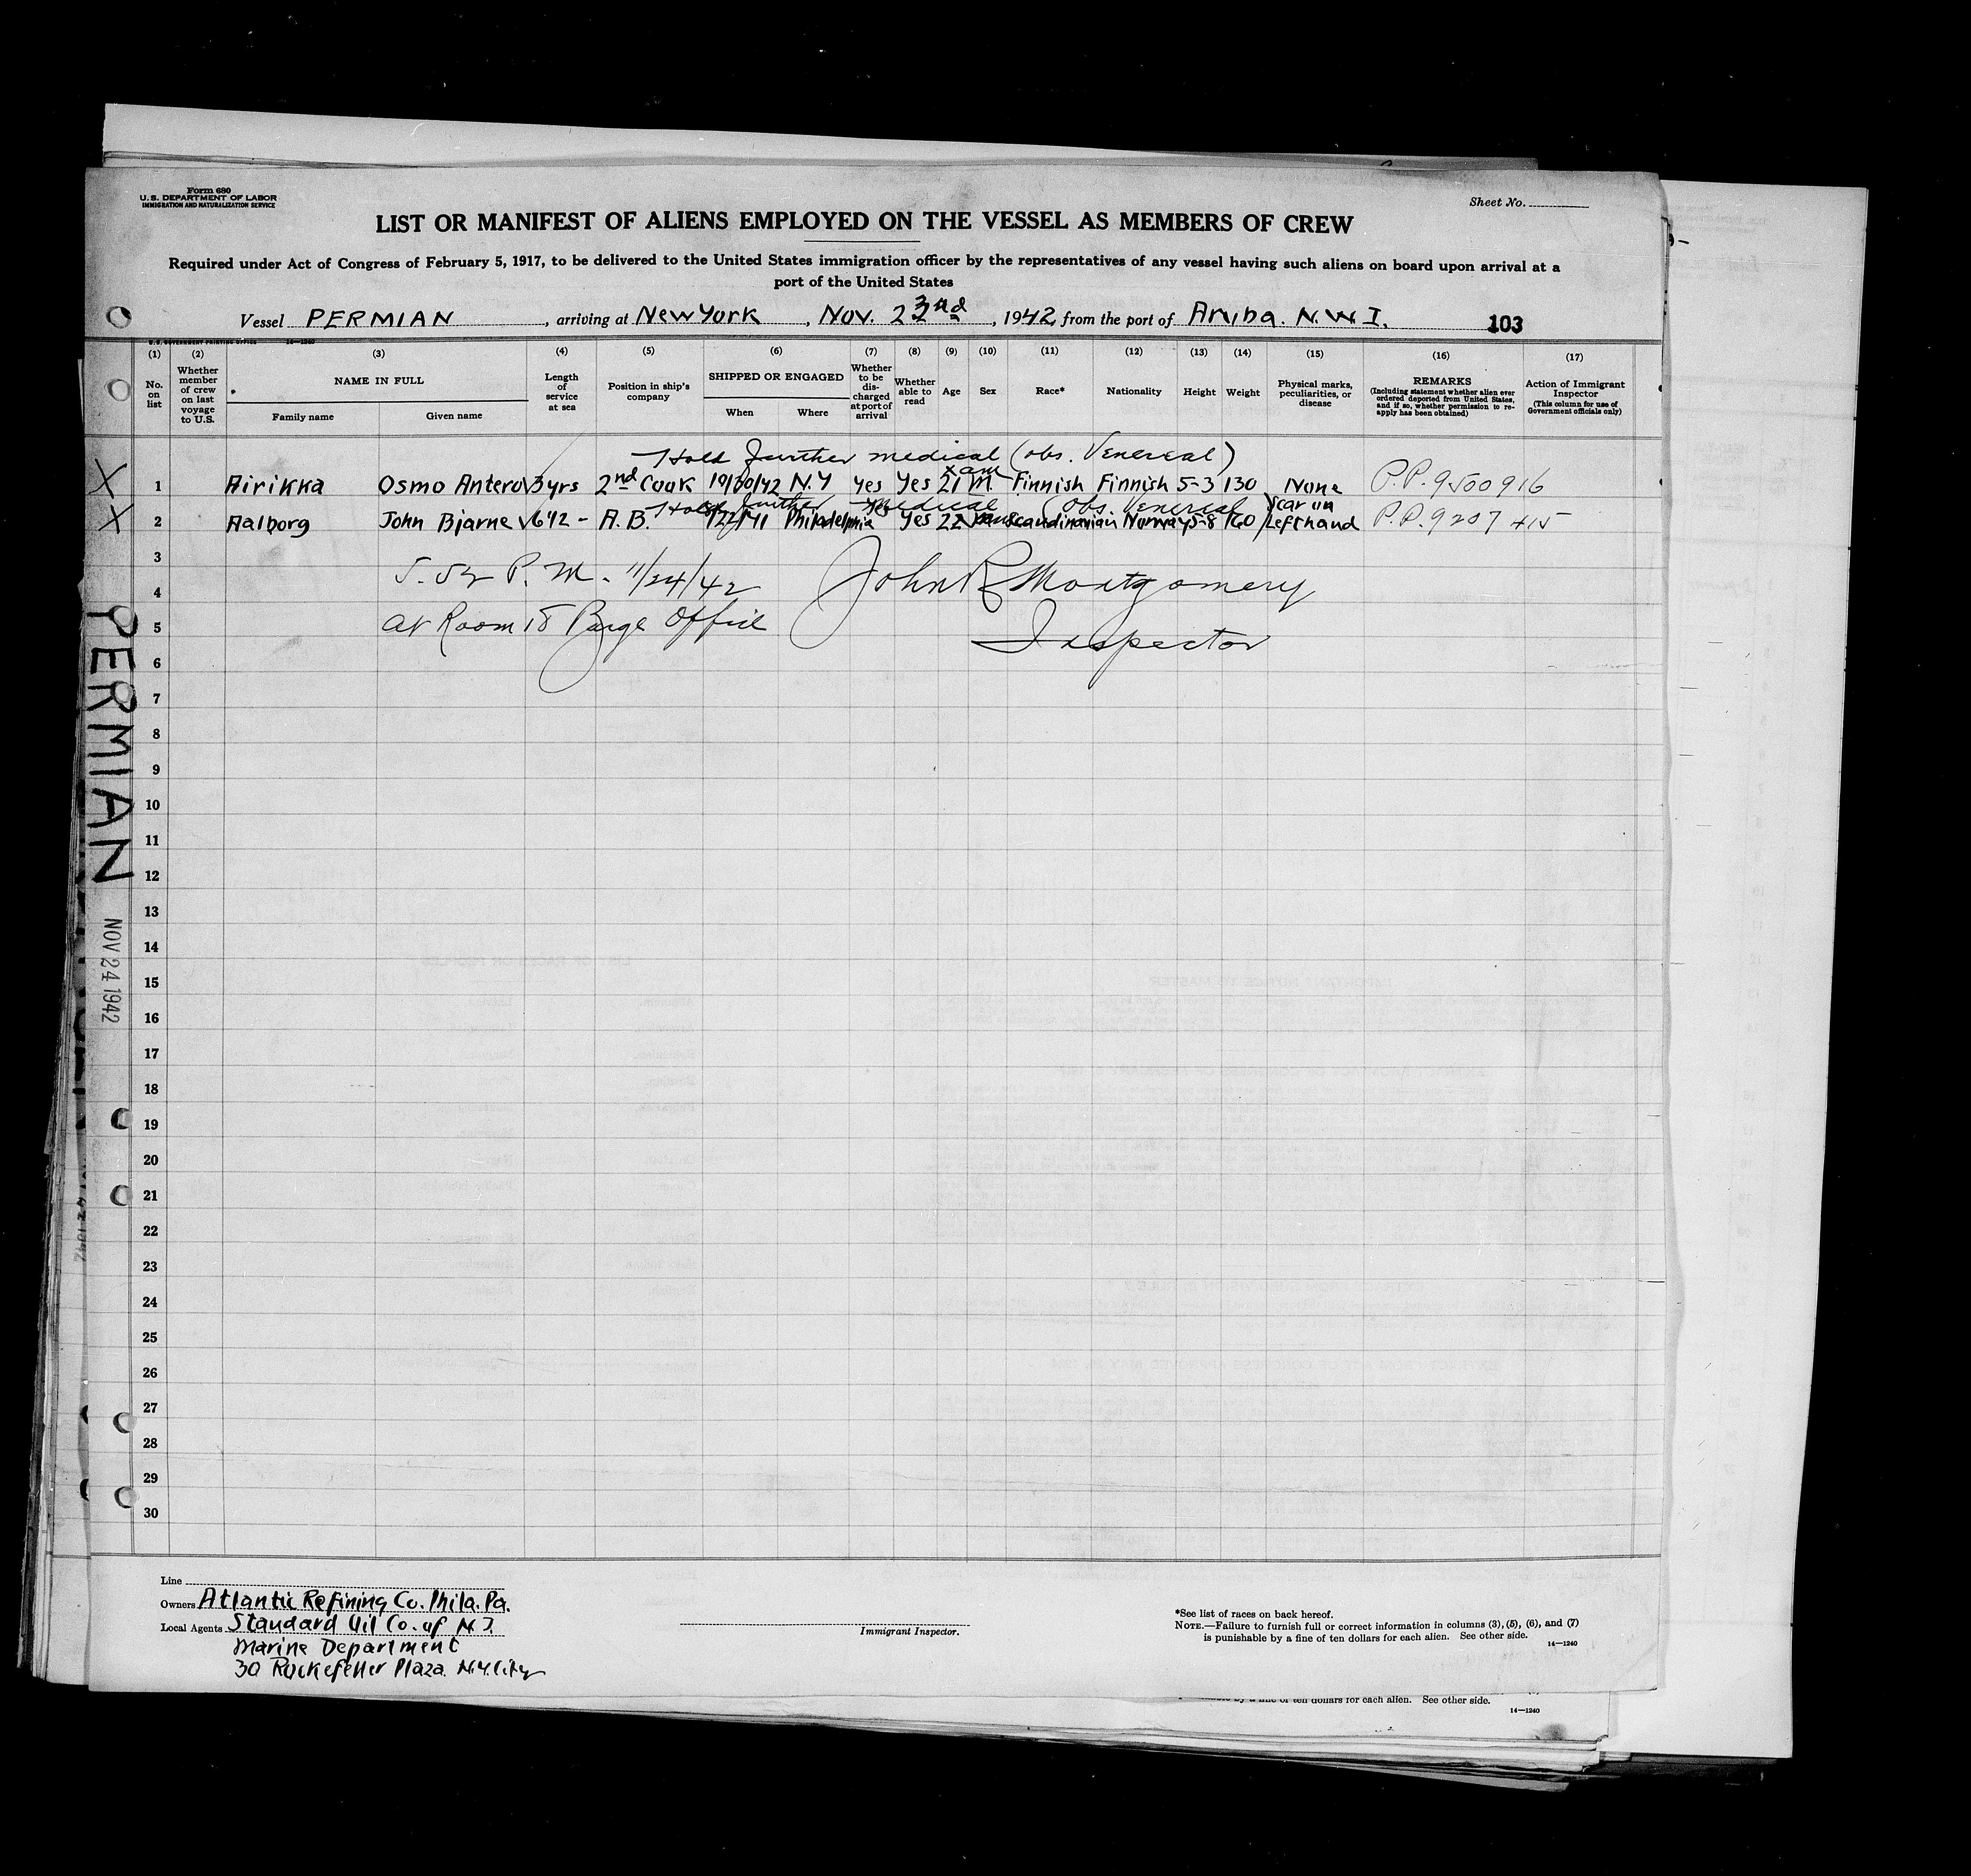 Form 680
U.S. DEPARTMENT OF LABOR
IMMIGRATION AND NATURALIZATION SERVICE
Sheet No.
LIST OR MANIFEST OF ALIENS EMPLOYED ON THE VESSEL AS MEMBERS OF CREW
Required under Act of Congress of February 5, 1917, to be delivered to the United States immigration officer by the representatives of any vessel having such aliens on board upon arrival at a
port of the United States
Vessel PERMIAN, arriving at New York, Nov. 23rd, 1942, from the port of Aruba. N.W.I. 103
U.S. GOVERNMENT PRINTING OFFICE 14—1240
(1) (2) (3) (4) (5) (6) (7) (8) (9) (10) (11) (12) (13) (14) (15) (16) (17)
No. on list
Whether member of crew on last voyage to U.S.
NAME IN FULL
Family name Given name
Length of service at sea
Position in ship's company
SHIPPED OR ENGAGED
When Where
Whether to be discharged at port of arrival
Whether able to read
Age
Sex
Race*
Nationality
Height
Weight
Physical marks, peculiarities, or disease
REMARKS
(Including statement whether alien ever ordered deported from United States, and if so, whether permission to reapply has been obtained)
Action of Immigrant Inspector
(This column for use of Government officials only)
Hold further medical exam (obs. Venereal)
X 1 Airikka Osmo Antero 3yrs 2nd Cook 10/30/42 N.Y Yes Yes 21 M Finnish Finnish 5-3 130 None P.P. 9500916
Hold further medical (obs. Venereal
X 2 Aalborg John Bjarne A.B. Philadelphia Yes Yes 22 Scandinavian Norway 5-8 160 Scar on Lefthand P.P. 9207415
3
4
5
6
7
8
9
10
11
12
13
14
15
16
17
18
19
20
21
22
23
24
25
26
27
28
29
30
5.52 P.M. 11/24/42 John R Montgomery
at Room 18 Barge Office Inspector
PERMIAN
NOV 24 1942
Line
Owners Atlantic Refining Co. Phila. Pa.
Local Agents Standard Oil Co. of N.J.
Marine Department
30 Rockefeller Plaza. N.Y. City
Immigrant Inspector.
*See list of races on back hereof.
NOTE.—Failure to furnish full or correct information in columns (3), (5), (6), and (7)
is punishable by a fine of ten dollars for each alien. See other side.
14—1240
of ten dollars for each alien. See other side.
14—1240